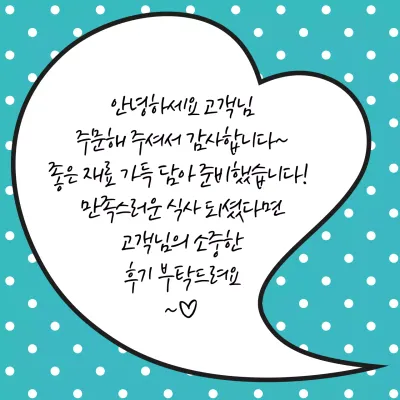 안녕하세요 고객님
주문해 주셔서 감사합니다~
좋은 재료 가득 담아 준비했습니다!
만족스러운 식사 되셨다면
고객님의 소중한
후기 부탁드려요
~♡